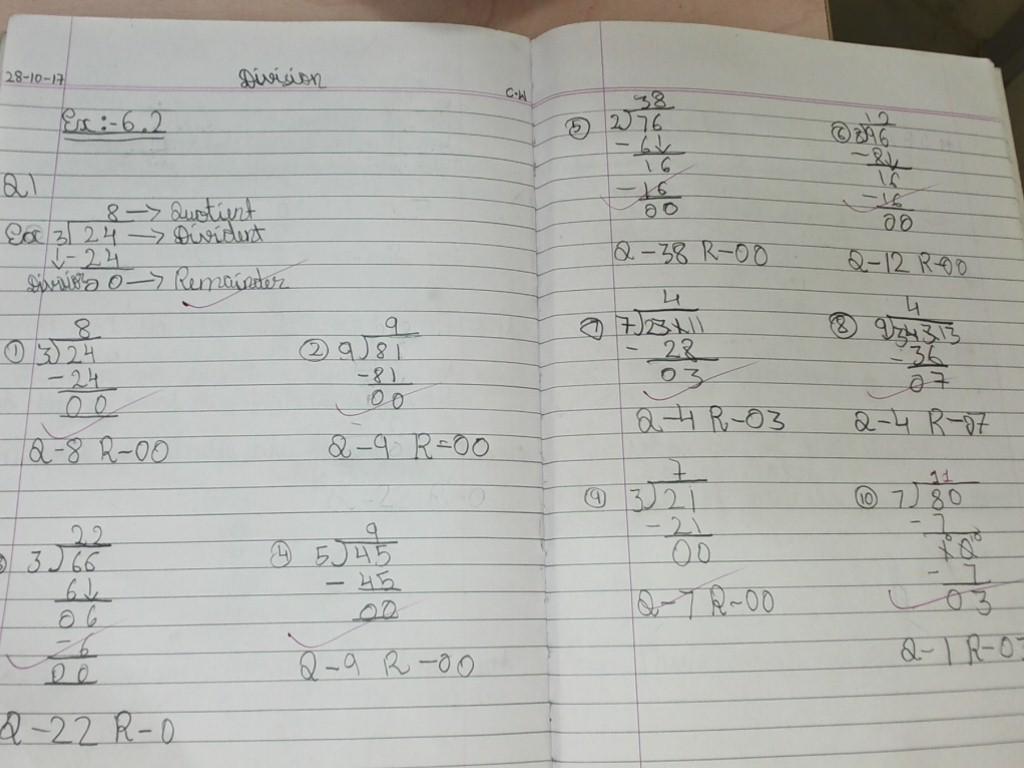 28-10-17 Division C.W
Ex:-6.2
Q1
8 → Quotient
Ex 3) 24 → Dividert
↓ - 24
0 → Remainder
① 8
3) 24
- 24
00
Q-8 R-00
② 9
9) 81
-81
00
Q-9 R=00
22
3) 66
6↓
06
- 6
00
Q-22 R-0
④ 9
5) 45
- 45
00
Q-9 R-00
⑤ 38
2) 76
- 6↓
16
- 16
00
Q-38 R-00
⑥ 12
-8↓
16
-16
00
Q-12 R-00
⑦ 4
7)
- 28
03
Q-4 R-03
⑧ 4
9)
- 36
07
Q-4 R-07
⑨ 7
3) 21
- 21
00
Q-7 R-00
⑩ 11
7) 80
- 7
- 7
03
Q-1 R-03